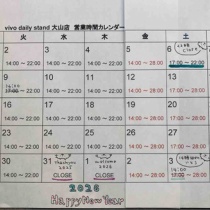 vivo daily stand 大山店 営業時間カレンダー
月 火 水 木 金 土
2 3 4 5 6
14:00 ~ 22:00 14:00 ~ 22:00 14:00 ~ 22:00 14:00 ~ 28:00 17:00 ~ 22:00
9 10 11 12 13
14:00 ~ 22:00 14:00 ~ 22:00 14:00 ~ 22:00 14:00 ~ 28:00 14:00 ~ 28:00
16 17 18 19 20
14:00 ~ 22:00 14:00 ~ 22:00 14:00 ~ 22:00 14:00 ~ 28:00 14:00 ~ 28:00
23 24 25 26 27
14:00 ~ 22:00 14:00 ~ 22:00 14:00 ~ 22:00 14:00 ~ 28:00 14:00 ~ 28:00
30 31 1 2 3
14:00 ~ 22:00 CLOSE CLOSE 14:00 ~ 28:00
2026
Happy New Year